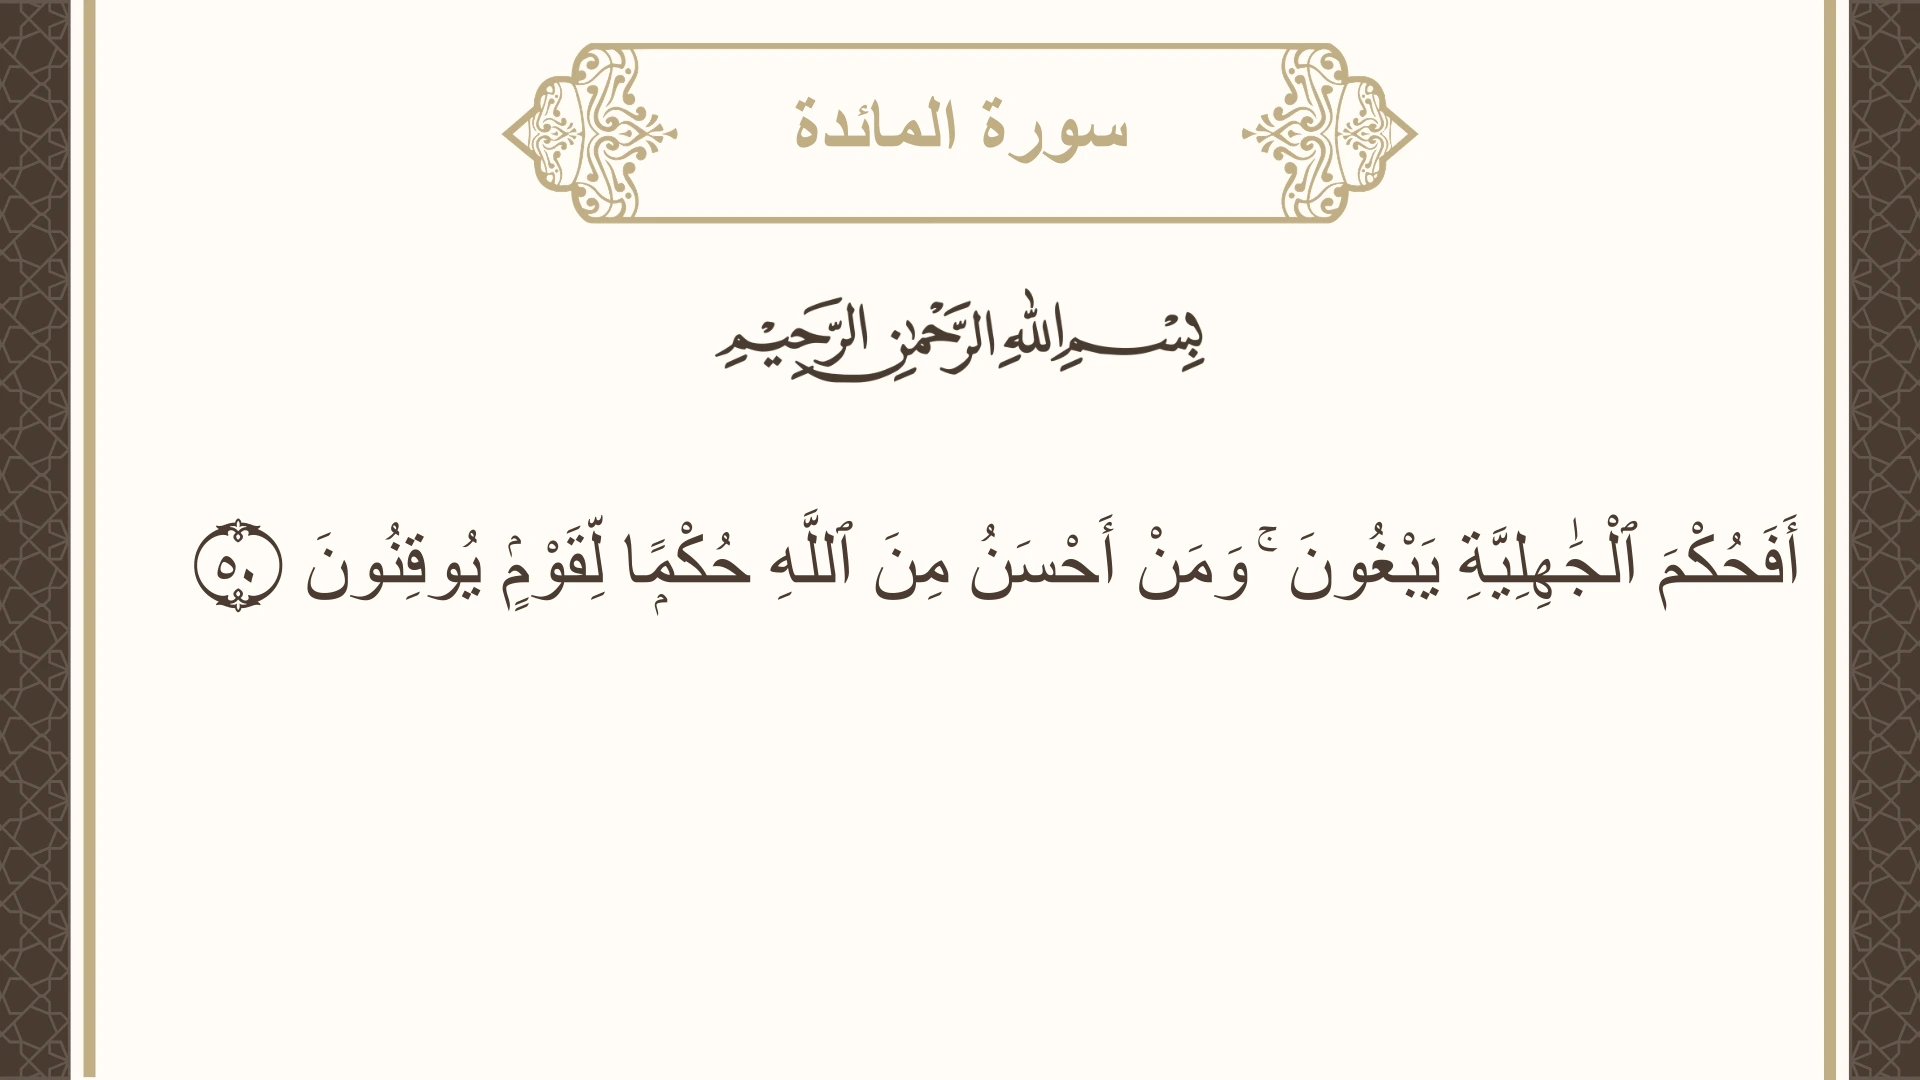 سورة المائدة
بِسْمِ اللهِ الرَّحْمٰنِ الرَّحِيْمِ
أَفَحُكْمَ ٱلْجَٰهِلِيَّةِ يَبْغُونَ ۚ وَمَنْ أَحْسَنُ مِنَ ٱللَّهِ حُكْمًۭا لِّقَوْمٍۢ يُوقِنُونَ ٥٠